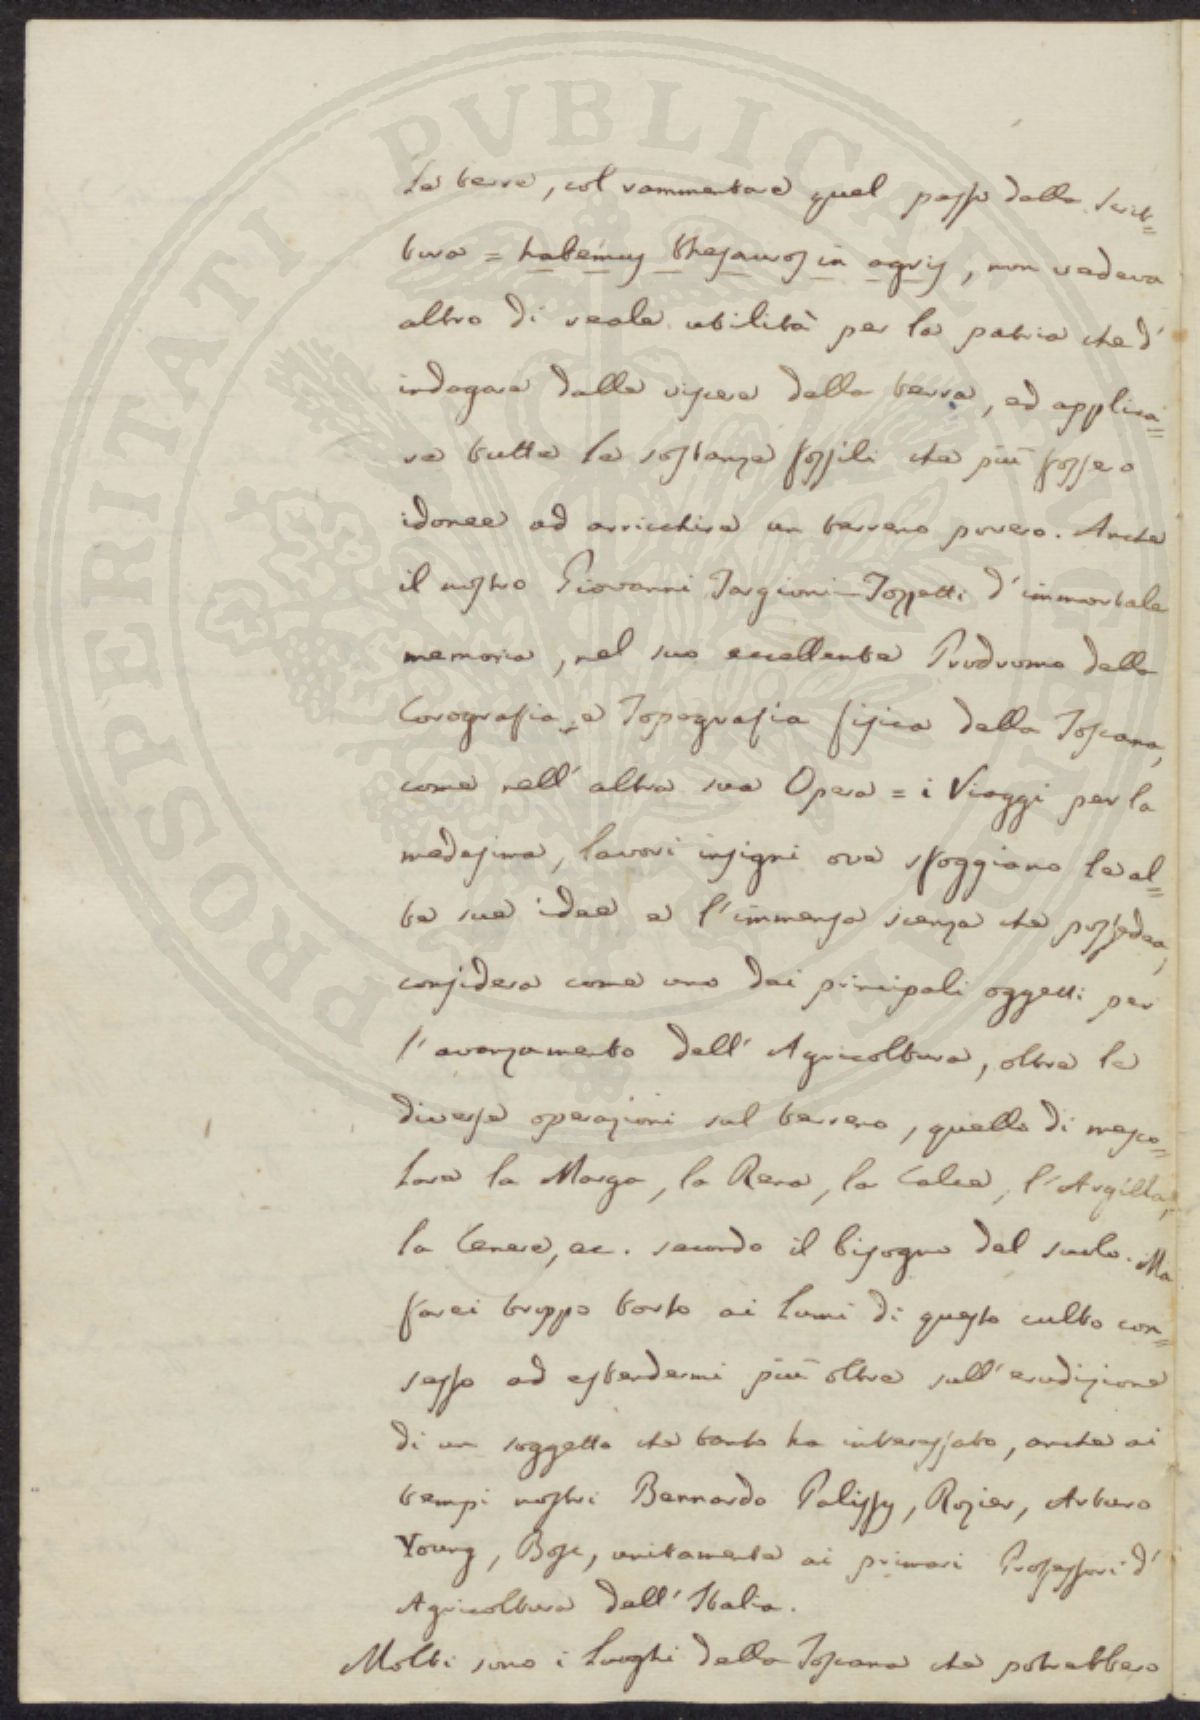 PROSPERITATI PVBLICAE
le terre, col rammentare quel passo della Scrit=
tura = habemus thesauros in agris, non vedeva
altro di reale utilità per la patria che d'
indagare dalle viscere della terra, ed applica=
re tutte le sostanze fossili che più fossero
idonee ad arricchire un terreno povero. Anche
il nostro Giovanni Targioni-Tozzetti d'immortale
memoria, nel suo eccellente Prodromo della
Corografia, e Topografia fisica della Toscana,
come nell'altra sua Opera = i Viaggi per la
medesima, lavori insigni ove sfoggiano le al=
te sue idee e l'immensa scienza che possedea,
considera come uno dei principali oggetti per
l'avanzamento dell'Agricoltura, oltre le
diverse operazioni sul terreno, quello di mesco=
lare la Marga, la Rena, la Calce, l'Argilla,
la Cenere, ec. secondo il bisogno del suolo. Ma
farei troppo torto ai Lumi di questo culto con=
sesso ad estendermi più oltre sull'erudizione
di un soggetto che tanto ha interessato, anche ai
tempi nostri Bernardo Palissy, Rozier, Arturo
Young, Bosc, unitamente ai primari Professori d'
Agricoltura dell'Italia.
Molti sono i Luoghi della Toscana che potrebbero